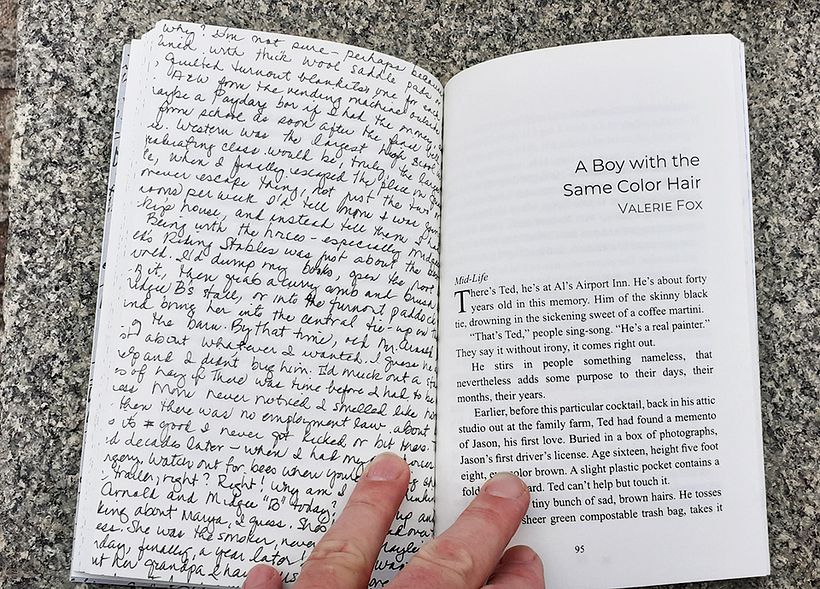 why? I'm not sure - perhaps becau
lined with thick wool saddle pads
, quilted turnout blankets, one for ea
A&W from the vending machine outsid
maybe a Payday bar if I had the money
from school as soon after the final bell
e. Western was the largest high scho
raduating class would be, truly, the larg
te, when I finally escaped the place in
never escape thing, not just the two or
rooms per week I'd tell Mom I was goin
kip's house, and instead tell them I ha
Being with the horses - especially Midgie
ett's Riding Stables was just about the be
world. I'd dump my books, open the
it, then grab a curry comb and brush
idgie B's stall, or into the turnout paddock
ind bring her into the central tie-up
g the barn. By that time, old Mr. Arnold
about whatever I wanted. I guess he
elp and I didn't bug him. I'd muck out a sta
s of hay if there was time before I had to be
ess Mom never noticed I smelled like hor
then there was no employment law about
so it's good I never got kicked or bit
d decades later - when I had my
rgery. Watch out for bees when you're
trailer, right? Right! Why am I thinkin
Arnold and Midgie "B" today? up and
king about Marya, I guess. She's
ess. She was the smoker, never
day, finally, a year later! I was
ut her grandpa. I have
A Boy with the
Same Color Hair
VALERIE FOX
Mid-Life
There's Ted, he's at Al's Airport Inn. He's about forty
years old in this memory. Him of the skinny black
tie, drowning in the sickening sweet of a coffee martini.
"That's Ted," people sing-song. "He's a real painter."
They say it without irony, it comes right out.
He stirs in people something nameless, that
nevertheless adds some purpose to their days, their
months, their years.
Earlier, before this particular cocktail, back in his attic
studio out at the family farm, Ted had found a memento
of Jason, his first love. Buried in a box of photographs,
Jason's first driver's license. Age sixteen, height five foot
eight, color brown. A slight plastic pocket contains a
fold ard. Ted can't help but touch it.
tiny bunch of sad, brown hairs. He tosses
sheer green compostable trash bag, takes it
95